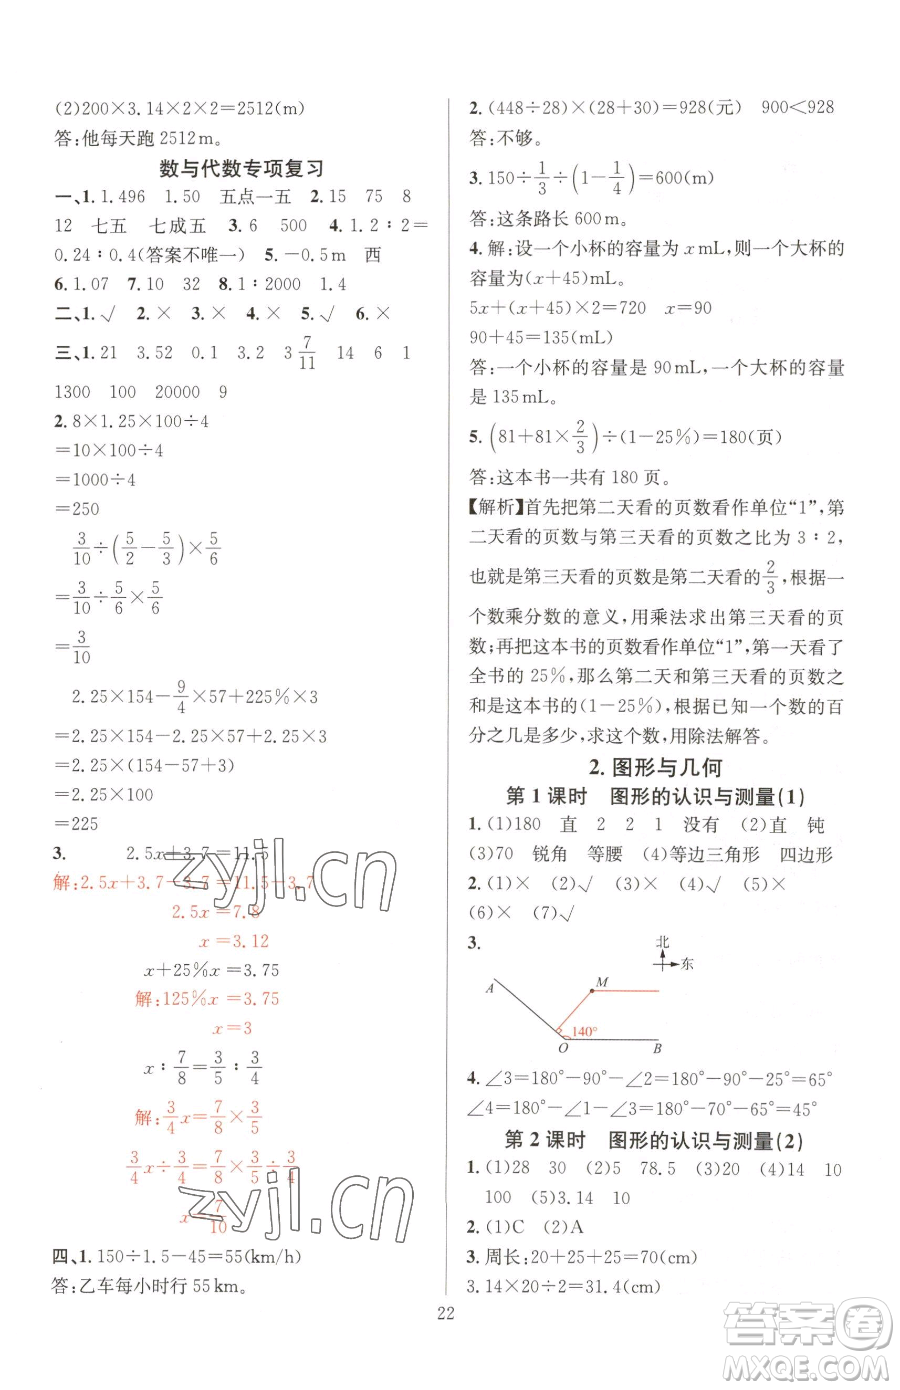 (2)200×3.14×2×2=2512(m)
答:他每天跑2512m。
数与代数专项复习
一、1.1.496 1.50 五点一五 2.15 75 8
12 七五 七成五 3.6 500 4.1.2∶2=
0.24∶0.4(答案不唯一) 5.-0.5m 西
6.1.07 7.10 32 8.1∶2000 1.4
二、1.√ 2.× 3.× 4.× 5.√ 6.×
三、1.21 3.52 0.1 3.2 3 7/11 14 6 1
1300 100 20000 9
2.8×1.25×100÷4
=10×100÷4
=1000÷4
=250
3/10÷(5/2-5/3)×5/6
=3/10÷5/6×5/6
=3/10
2.25×154-9/4×57+225%×3
=2.25×154-2.25×57+2.25×3
=2.25×(154-57+3)
=2.25×100
=225
3. 2.5x+3.7=11.5
解:2.5x+3.7-3.7=11.5-3.7
2.5x=7.8
x=3.12
x+25%x=3.75
解:125%x=3.75
x=3
x∶7/8=3/5∶3/4
解:3/4x=7/8×3/5
3/4x÷3/4=7/8×3/5÷3/4
x=7/10
四、1.150÷1.5-45=55(km/h)
答:乙车每小时行55km。
2.(448÷28)×(28+30)=928(元) 900<928
答:不够。
3.150÷1/3÷(1-1/4)=600(m)
答:这条路长600m。
4.解:设一个小杯的容量为xmL,则一个大杯的
容量为(x+45)mL。
5x+(x+45)×2=720 x=90
90+45=135(mL)
答:一个小杯的容量是90mL,一个大杯的容量
是135mL。
5.(81+81×2/3)÷(1-25%)=180(页)
答:这本书一共有180页。
【解析】首先把第二天看的页数看作单位“1”,第
二天看的页数与第三天看的页数之比为3∶2,
也就是第三天看的页数是第二天看的2/3,根据一
个数乘分数的意义,用乘法求出第三天看的页
数;再把这本书的页数看作单位“1”,第一天看了
全书的25%,那么第二天和第三天看的页数之
和是这本书的(1-25%),根据已知一个数的百
分之几是多少,求这个数,用除法解答。
2.图形与几何
第1课时 图形的认识与测量(1)
1.(1)180 直 2 2 1 没有 (2)直 钝
(3)70 锐角 等腰 (4)等边三角形 四边形
2.(1)× (2)√ (3)× (4)√ (5)×
(6)× (7)√
3.
北
东
A
M
140°
O
B
4.∠3=180°-90°-∠2=180°-90°-25°=65°
∠4=180°-∠1-∠3=180°-70°-65°=45°
第2课时 图形的认识与测量(2)
1.(1)28 30 (2)5 78.5 (3)20 (4)14 10
100 (5)3.14 10
2.(1)C (2)A
3.周长:20+25+25=70(cm)
3.14×20÷2=31.4(cm)
22
zyjl.cn
zyjl.cn
答案圈
MXQE.COM